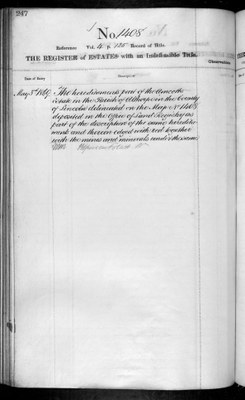 247
No. 1408
Reference Vol. 4 p. 135 Record of Title.
THE REGISTER of ESTATES with an Indefeasible Title.
Date of Entry
Description
Observations
May 3rd 1869. The hereditaments part of the
Estate in the Parish of Althorpe in the County
of Lincoln delineated on the Map No. 1408
deposited in the Office of Land Registry as
part of the description of the same heredita-
ments and therein edged with red together
with the mines and minerals under the same